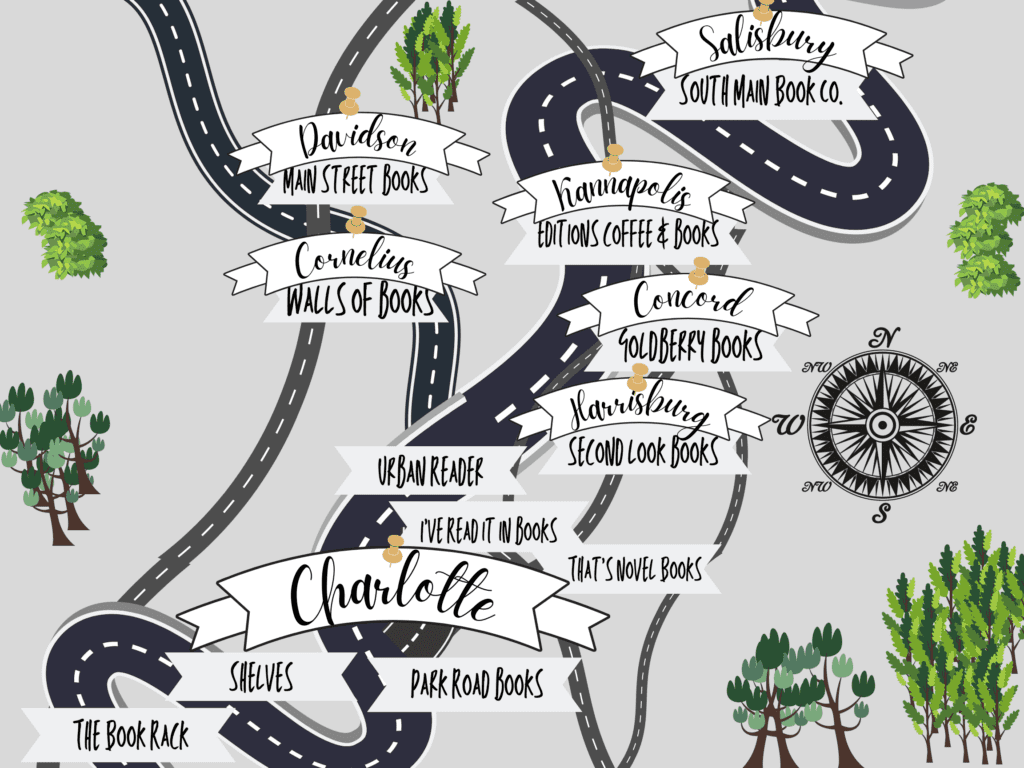 Salisbury
SOUTH MAIN BOOK CO.
Davidson
MAIN STREET BOOKS
Kannapolis
EDITIONS COFFEE & BOOKS
Cornelius
WALLS OF BOOKS
Concord
GOLDBERRY BOOKS
Harrisburg
SECOND LOOK BOOKS
N
NW
NE
W
E
NW
NE
S
URBAN READER
I'VE READ IT IN BOOKS
THAT'S NOVEL BOOKS
Charlotte
SHELVES
PARK ROAD BOOKS
THE BOOK RACK